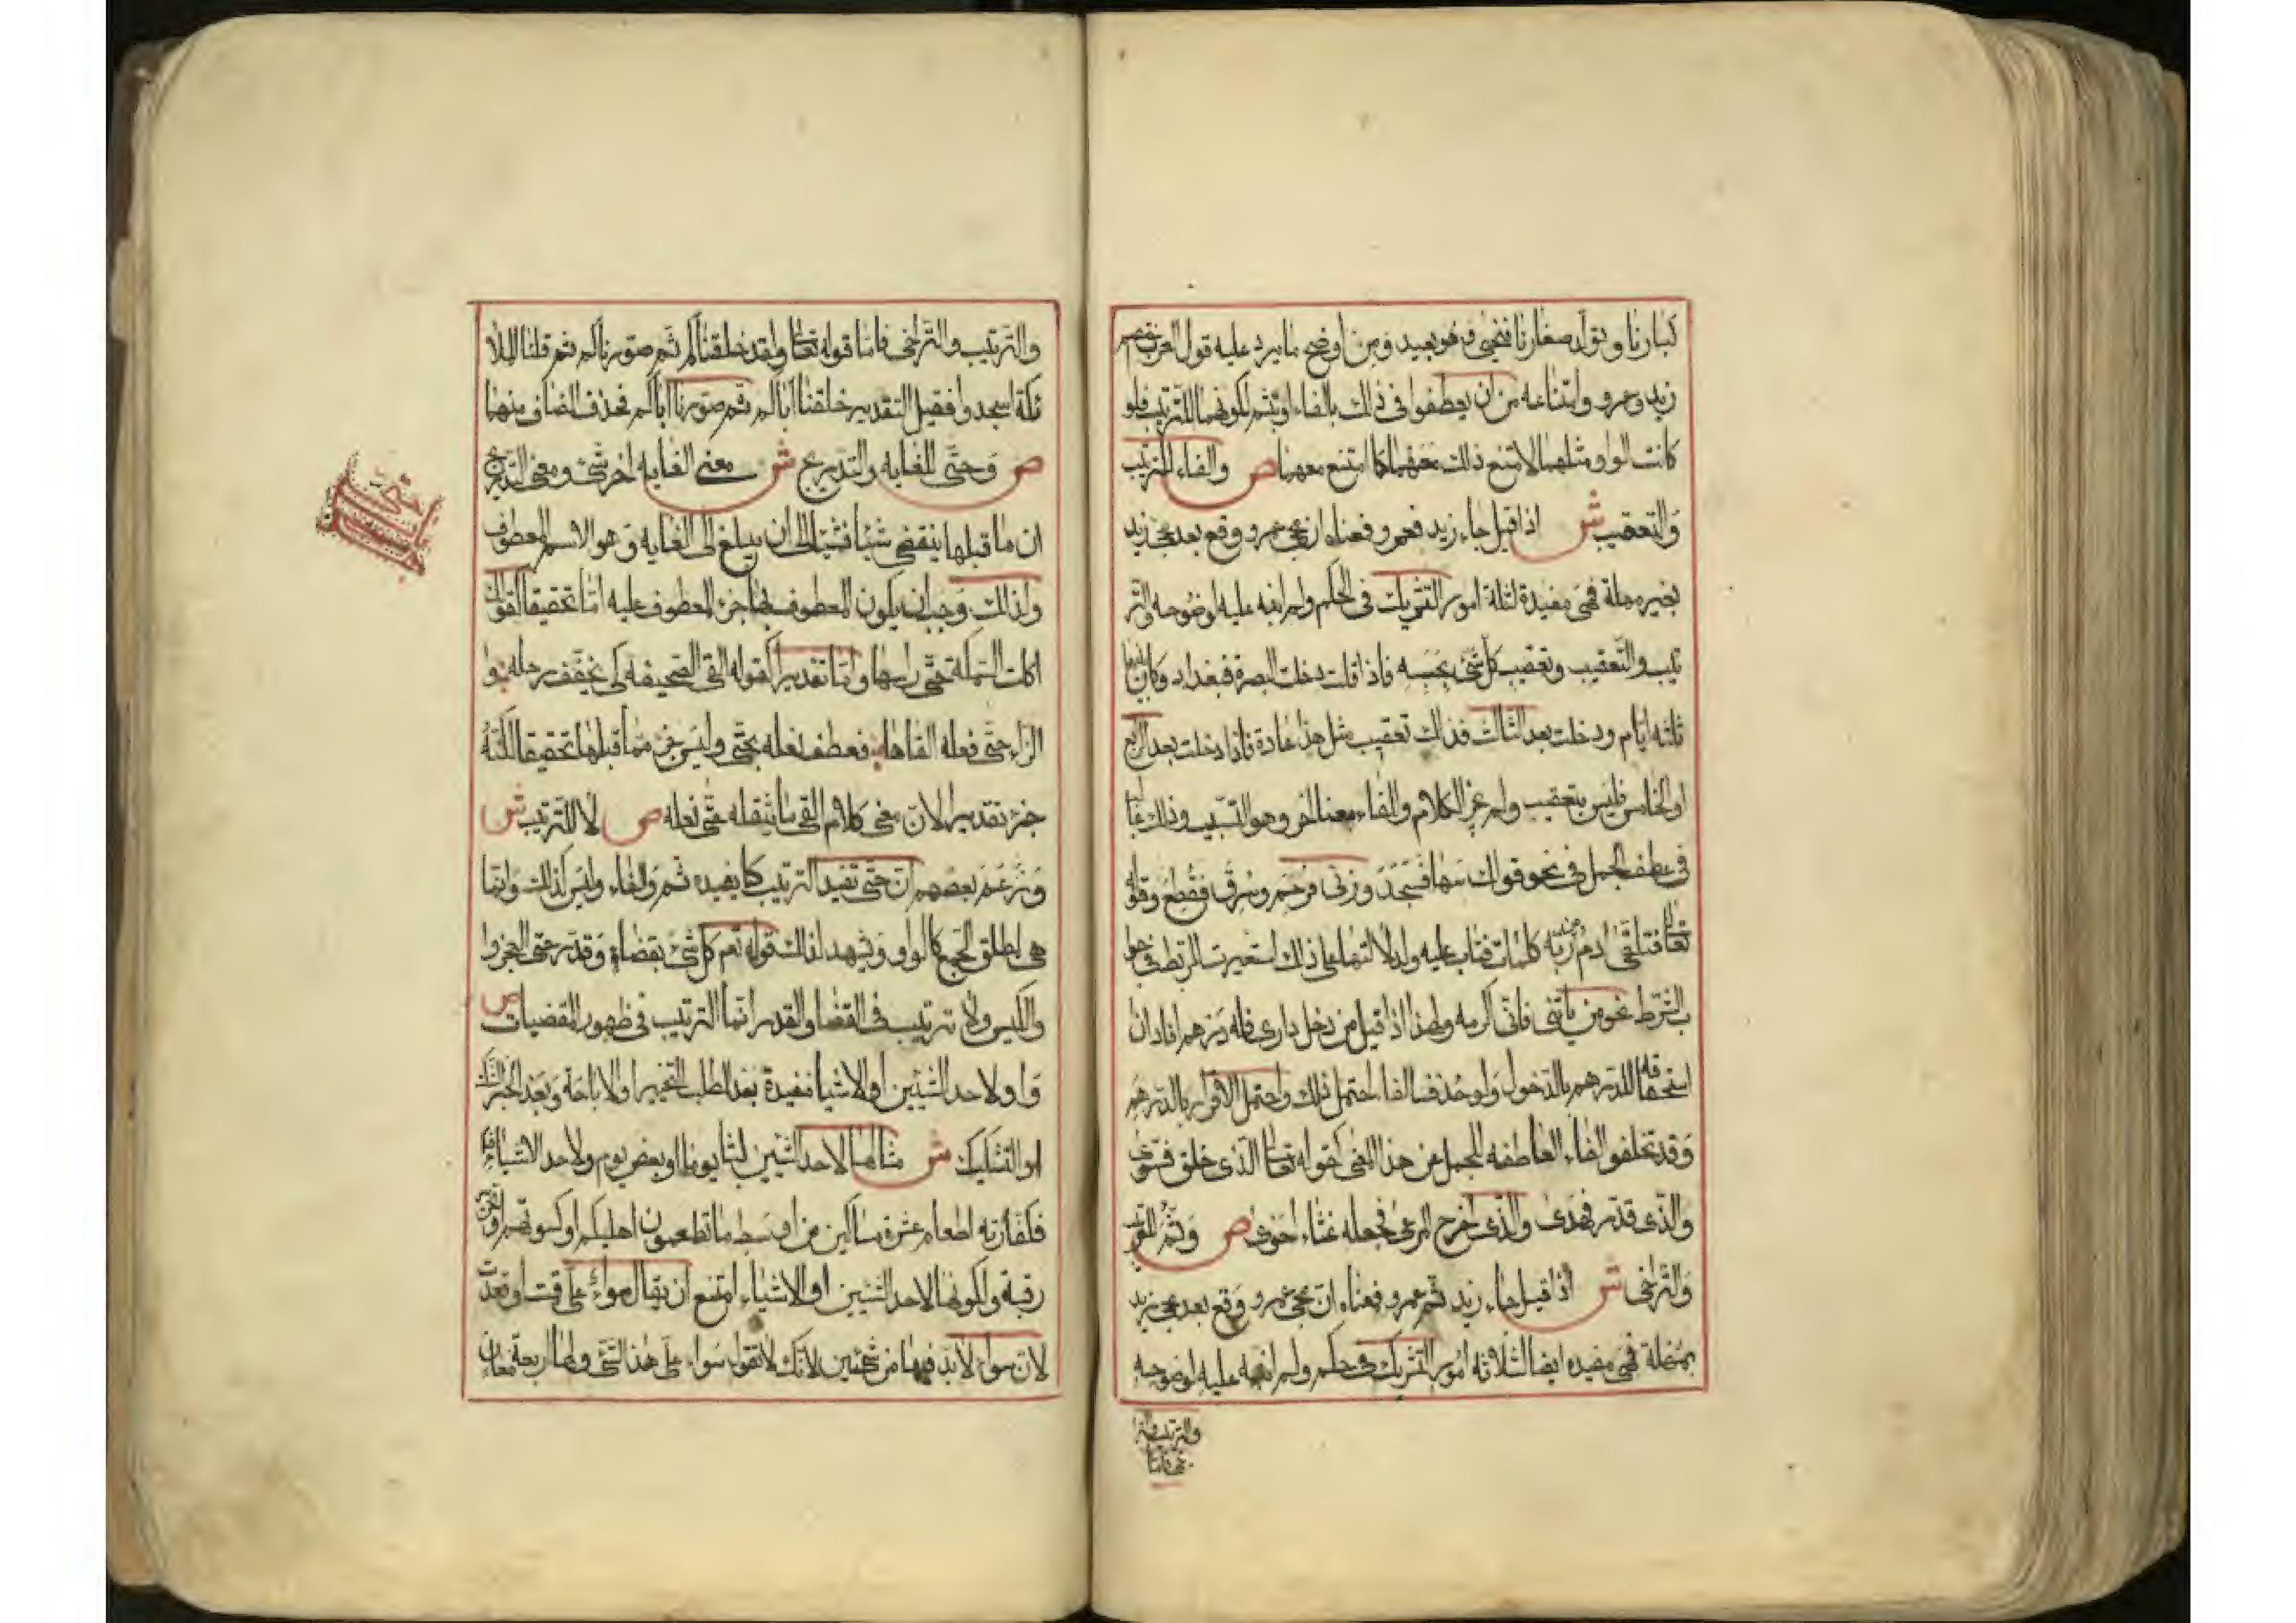 كبارنا وتولد صغارنا فنحيى فهو بعيد ومن اوضح ما يرد عليه قول العرب اختصم
زيد وعمرو وامتناعه من ان يعطفوا فى ذلك بالفاء او بثم لكونهما للترتيب فلو
كانت الواو مثلهما لامتنع ذلك معها كما امتنع معهما ص والفاء للترتيب
والتعقيب ش اذا قيل جاء زيد فعمرو فمعناه ان مجى عمرو وقع بعد مجى زيد
بغير مهلة فهى مفيدة لثلثة امور التشريك فى الحكم ولم انبه عليه لوضوحه والتر
تيب والتعقيب وتعقيب كل شئ بحسبه فاذا قلت دخلت البصرة فبغداد وكان بينهما
ثلثه ايام ودخلت بعد الثالث فذلك تعقيب مثل هذا عادة فاذا دخلت بعد الرابع
او الخامس فليس بتعقيب ولم يجز الكلام وللفاء معنا اخر وهو التسبيب وذلك غالبا
فى عطف الجمل فى نحو قولك سها فسجد وزنى فرجم وسرق فقطع وقوله
تعالى فتلقى ادم من ربه كلمات فتاب عليه ولدلالتها على ذلك استعيرت للربط فى جوا
ب الشرط نحو من ياتنى فانى اكرمه ولهذا اذا قيل من دخل دارى فله درهم افاد ان
استحقاقه للدرهم بالدخول ولو حذف الفاء احتمل ذلك واحتمل الاقرار بالدرهم
وقد تخلفو الفاء العاطفه للجمل عن هذا المعنى كقوله تعالى الذى خلق فسوى
والذى قدر فهدى والذى اخرج المرعى فجعله غثاء احوى ص وثم للترتيب
والتراخى ش اذا قيل جاء زيد ثم عمرو فمعناه ان مجى عمرو وقع بعد مجى زيد
بمهلة فهى مفيده ايضا لثلاثه امور التشريك فى حكم ولم انبه عليه لوضوحه
والترتيب والترا
خى فاما
والترتيب والتراخى فاما قوله تعالى ولقد خلقناكم ثم صورناكم ثم قلنا للملا
ئكة اسجدوا فقيل التقدير خلقنا اباكم ثم صورنا اباكم فحذف المضاف منهما
ص وحتى للغايه والتدريج ش معنى الغايه اخر شئ ومعنى التدريج
ان ما قبلها ينقضى شيئا فشيئا الى ان يبلغ الى الغايه وهو الاسم المعطوف
ولذلك وجب ان يكون المعطوف بها جزء المعطوف عليه اما تحقيقا كقولك
اكلت السمكة حتى راسها واما تقديرا كقوله القى الصحيفه كى يخفف رحله وا
لزاد حتى نعله القاها فعطف نعله بحتى وليس جزء مما قبلها تحقيقا لكنه
جزء تقديرا لان معنى كلام القى ما يثقله حتى نعله ص لا للترتيب ش
وزعم بعضهم ان حتى تفيد الترتيب كما يفيده ثم والفاء وليس كذلك وانما
هى لمطلق الجمع كالواو ويشهد لذلك قوله عم كل شئ بقضاء وقدر حتى العجز وا
والكيس ولا ترتيب فى القضا والقدر انما الترتيب فى ظهور المقضيات ص
واو لاحد الشيئين او الاشيا مفيدة بعد الطلب التخيير او الاباحة وبعد الخبر الشك
او التشكيك ش مثالها لاحد الشيئين لبثنا يوما او بعض يوم ولاحد الاشياء
فكفارته اطعام عشرة مساكين من اوسط ما تطعمون اهليكم او كسوتهم او تحرير
رقبة ولكونها لاحد الشيئين او الاشياء امتنع ان يقال سواء على قمت او قعدت
لان سواء لابد فيها من شيئين لانك لا تقول سواء على هذا الشئ ولها اربعة معان
حتى